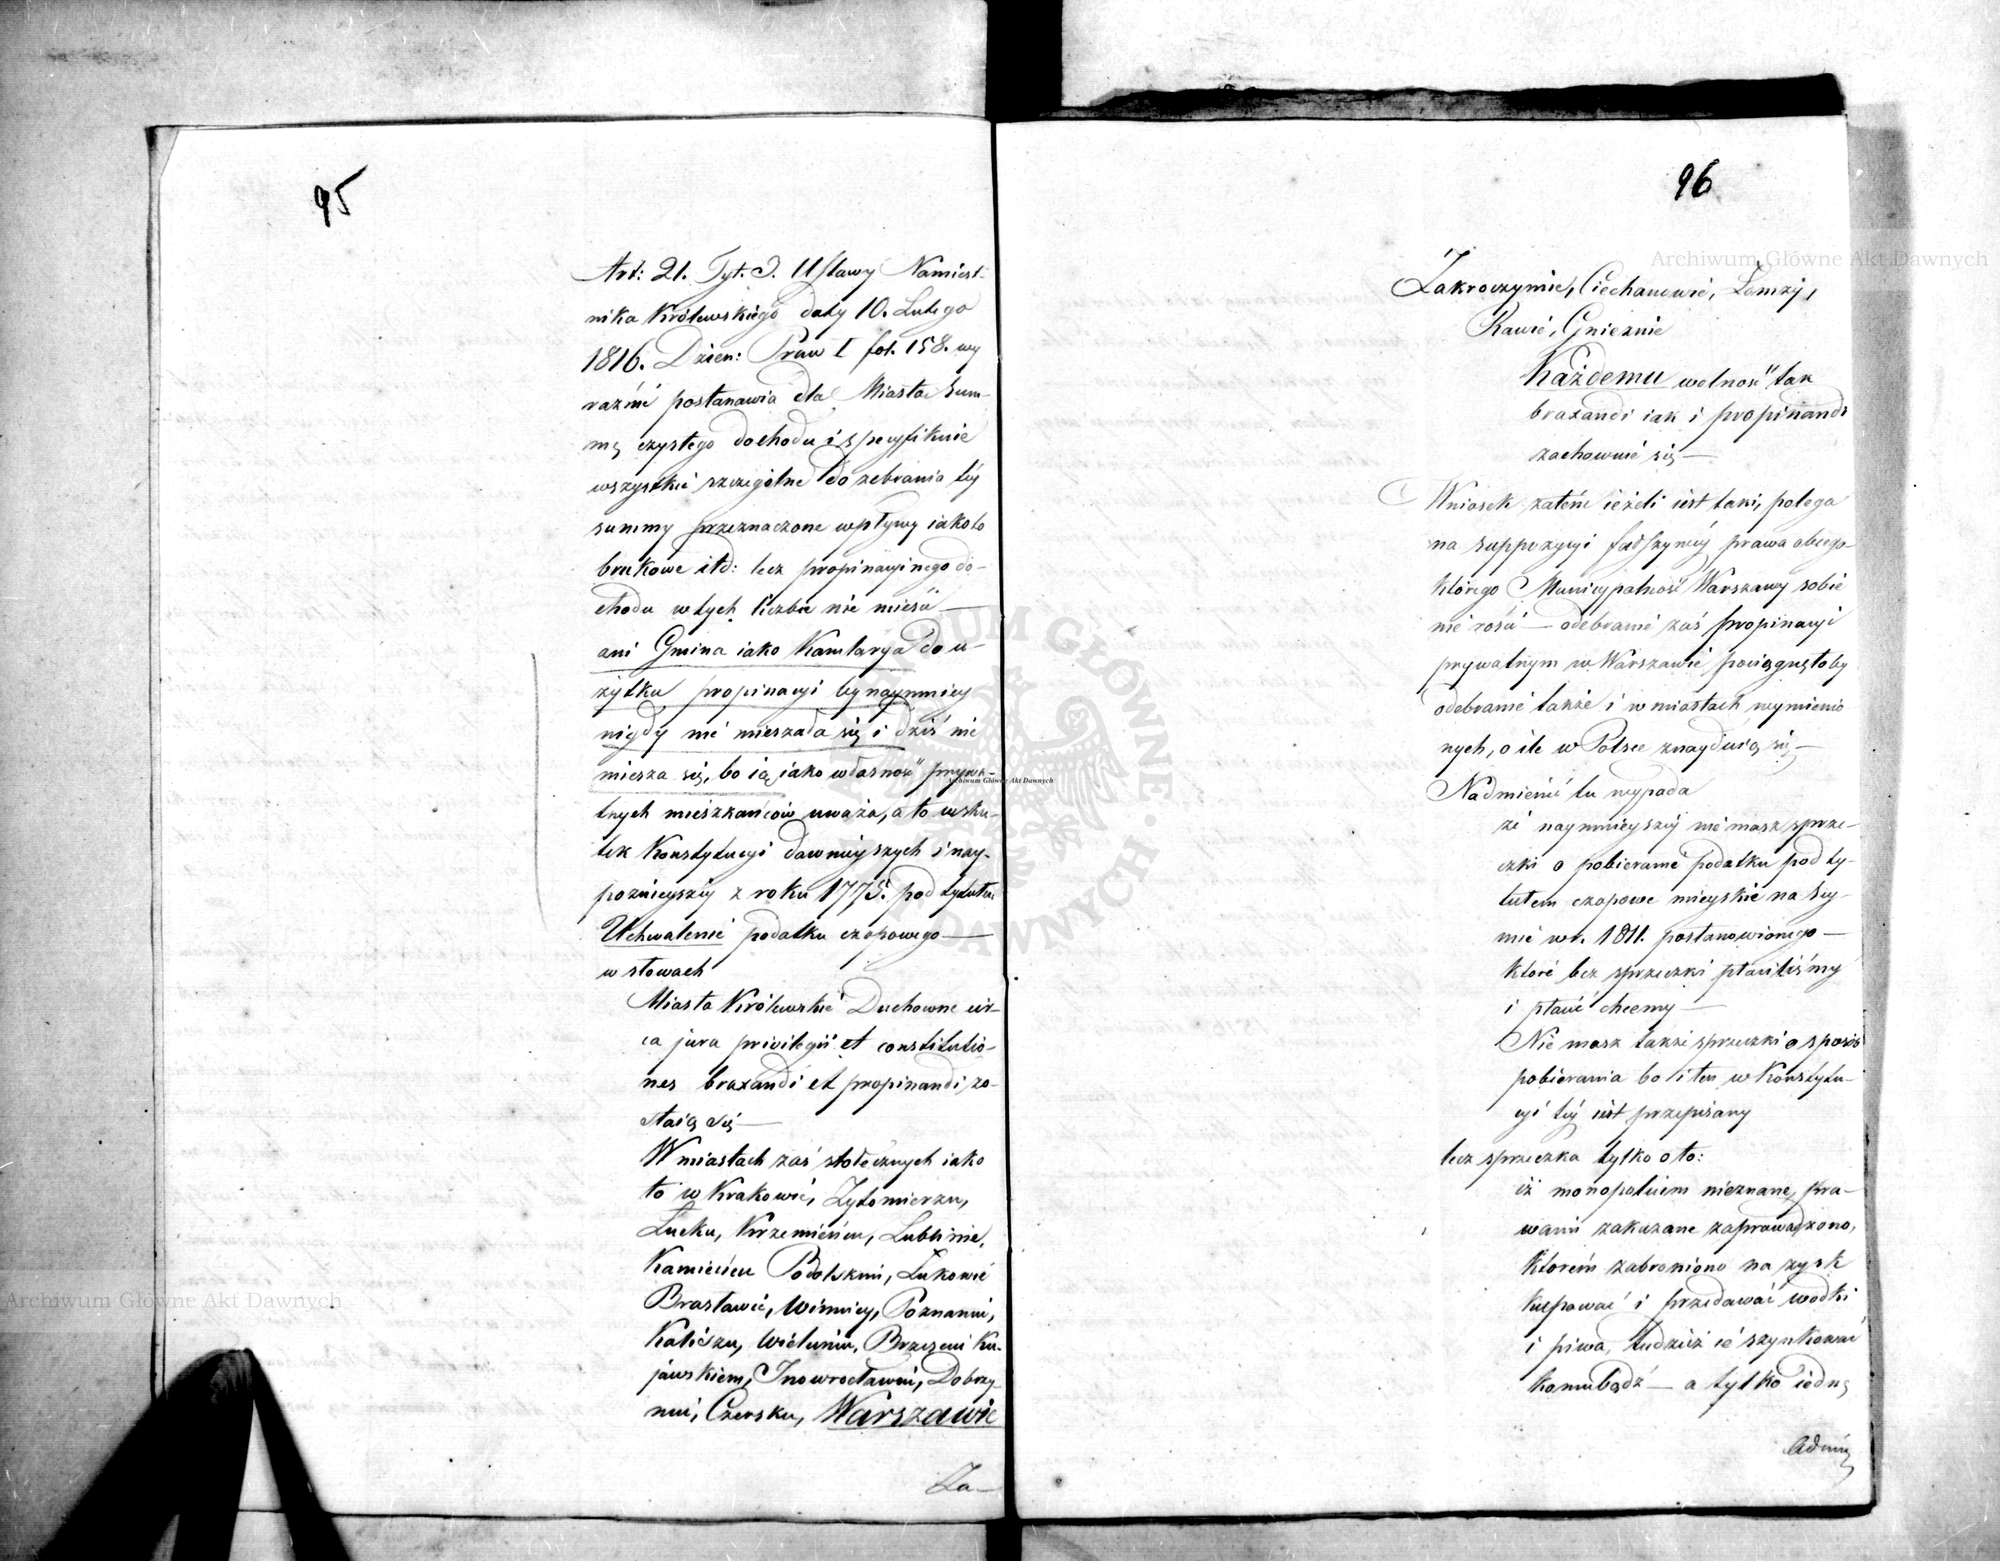 95
Art: 21. Tyt. I. Ustawy Namiest-
nika Królewskiego daty 10. Lutego
1816. Dzien: Praw I fol. 158. wy
raźnie postanawia dla Miasta sum-
mę czystego dochodu i specyficznie
wszystkie szczególne do zebrania téy
summy przeznaczone wpływy iakoto
brukowe itd: lecz propinacyinego do-
chodu w tych liczbie nie mieści —
ani Gmina iako Kamlarya do u-
żytku propinacyi bynaymniey
nigdy nie mieszała się i dziś nie
miesza się, bo ią iako własność prywa-
tnych mieszkańców uważa, a to wsku-
tek Konstytucyi dawnieyszych i nay-
poznieyszéy z roku 1775. pod tytułem
Uchwalenie podatku czopowego —
w słowach
Miasta Królewskie Duchowne cir-
ca jura privilegii et constitutio-
nes braxandi et propinandi, zo-
staią się —
W miastach zaś stołecznych iako
to w Krakowie, Żytomierzu,
Łucku, Krzemieńcu, Lublinie,
Kamieńcu Podolskim, Łukowie
Brasławiu, Winnicy, Poznaniu,
Kaliszu, Wieluniu, Brześciu Ku-
jawskiem, Inowrocławiu, Dobrzy-
niu, Czersku, Warszawie
Za-
96
Zakroczymie, Ciechanowie, Łomży,
Rawie, Gnieznie
Każdemu wolność tak
braxandi iak i propinandi
zachowuie się —
Wniosek zatém ieżeli iest taki, polega
na suppozycyi fałszywéy prawa obcego
którego Municypalność Warszawy sobie
nie rości — odebranie zaś propinacyi
prywatnym w Warszawie pociągnęłoby
odebranie także i w miastach wymienio
nych, o ile w Polsce znayduią się —
Nadmienić tu wypada
że naymnieyszéy nie masz sprze-
czki o pobieranie podatku pod ty-
tułem czopowe mieyskie na Sey-
mie w r. 1811. postanowionego —
które bez sprzeczki płaciliśmy
i płacić chcemy —
Nie masz także sprzeczki o sposób
pobierania bo i ten w Konstytu-
cyi téy iest przepisany
lecz sprzeczka tylko o to:
iż monopolium nieznane, pra-
wami zakazane zaprowadzono,
którém zabroniono na zysk
kupować i przedawać wódki
i piwa, tudzież ie szynkować
komubądź — a tylko iedną
Archiwum Główne Akt Dawnych
Archiwum Główne Akt Dawnych
Archiwum Główne Akt Dawnych
ARCHIWUM GŁÓWNE AKT DAWNYCH